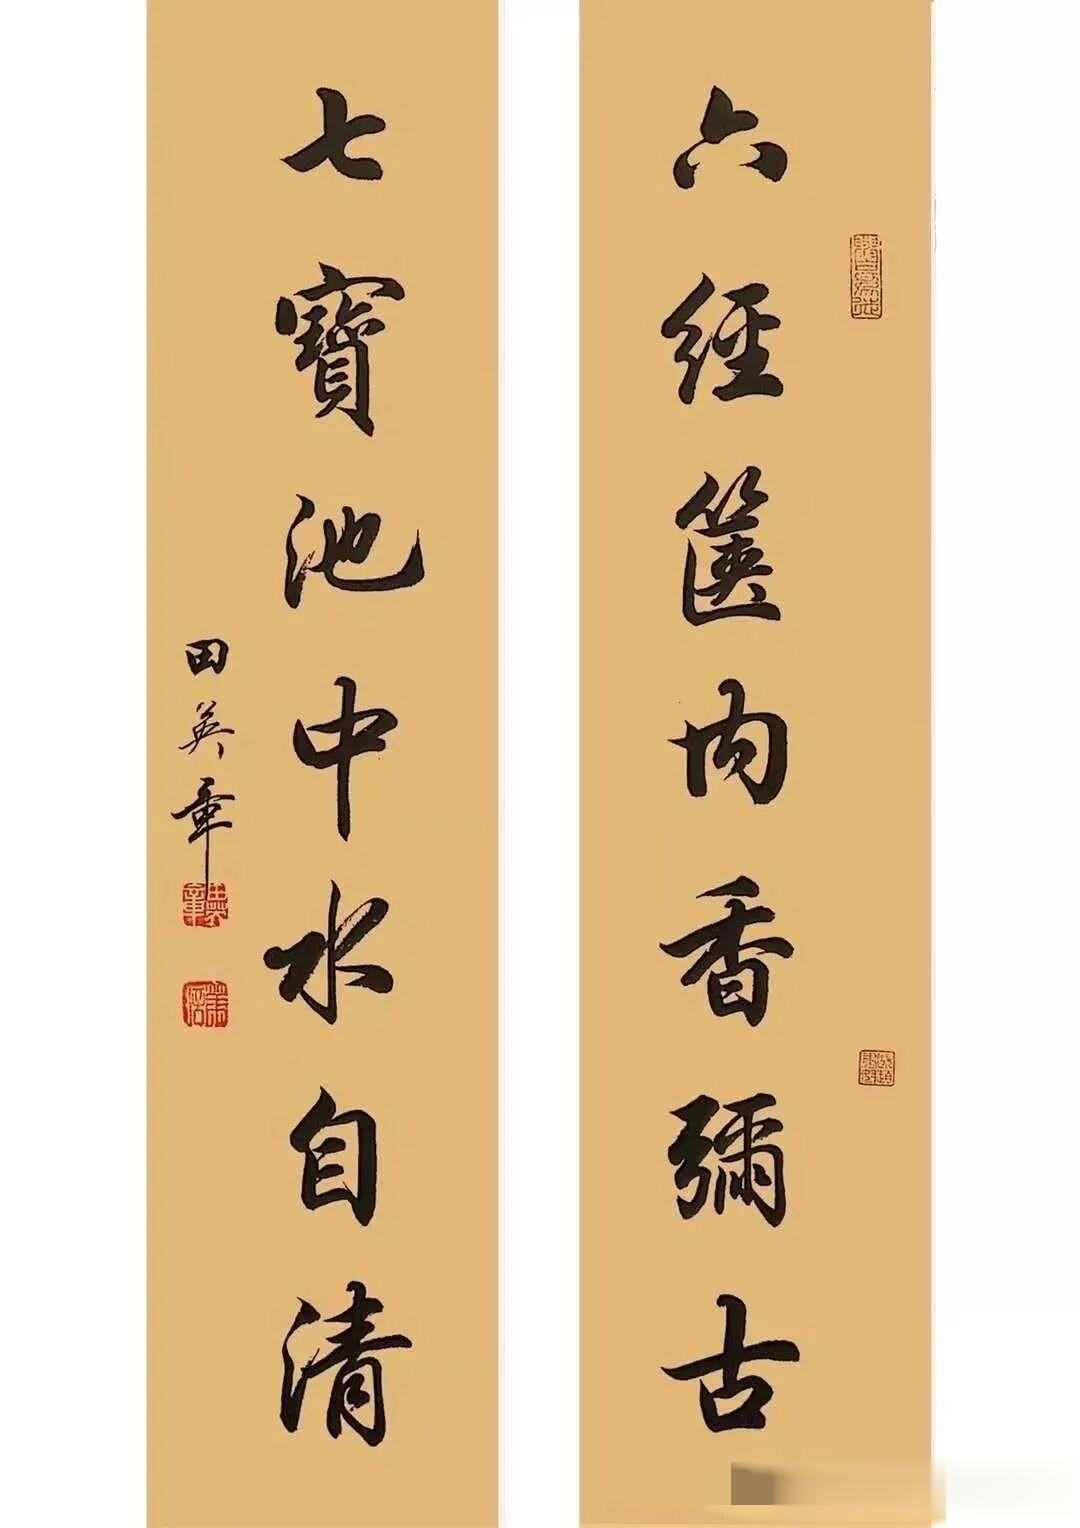 六經篋内香彌古
七寶池中水自清
田英章